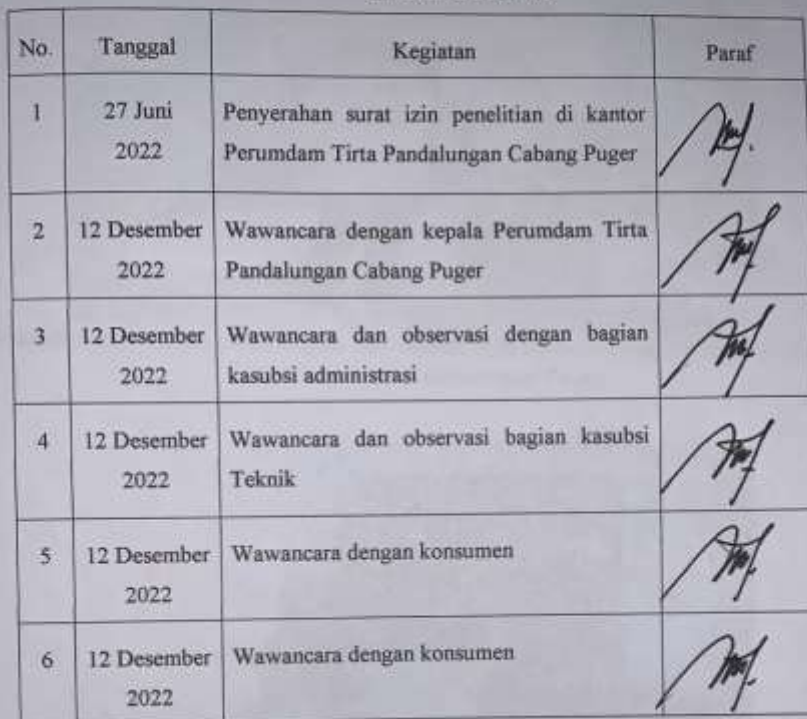 No. Tanggal Kegiatan Paraf
1 27 Juni Penyerahan surat izin penelitian di kantor
2022 Perumdam Tirta Pandalungan Cabang Puger
2 12 Desember Wawancara dengan kepala Perumdam Tirta
2022 Pandalungan Cabang Puger
3 12 Desember Wawancara dan observasi dengan bagian
2022 kasubsi administrasi
4 12 Desember Wawancara dan observasi bagian kasubsi
2022 Teknik
5 12 Desember Wawancara dengan konsumen
2022
6 12 Desember Wawancara dengan konsumen
2022